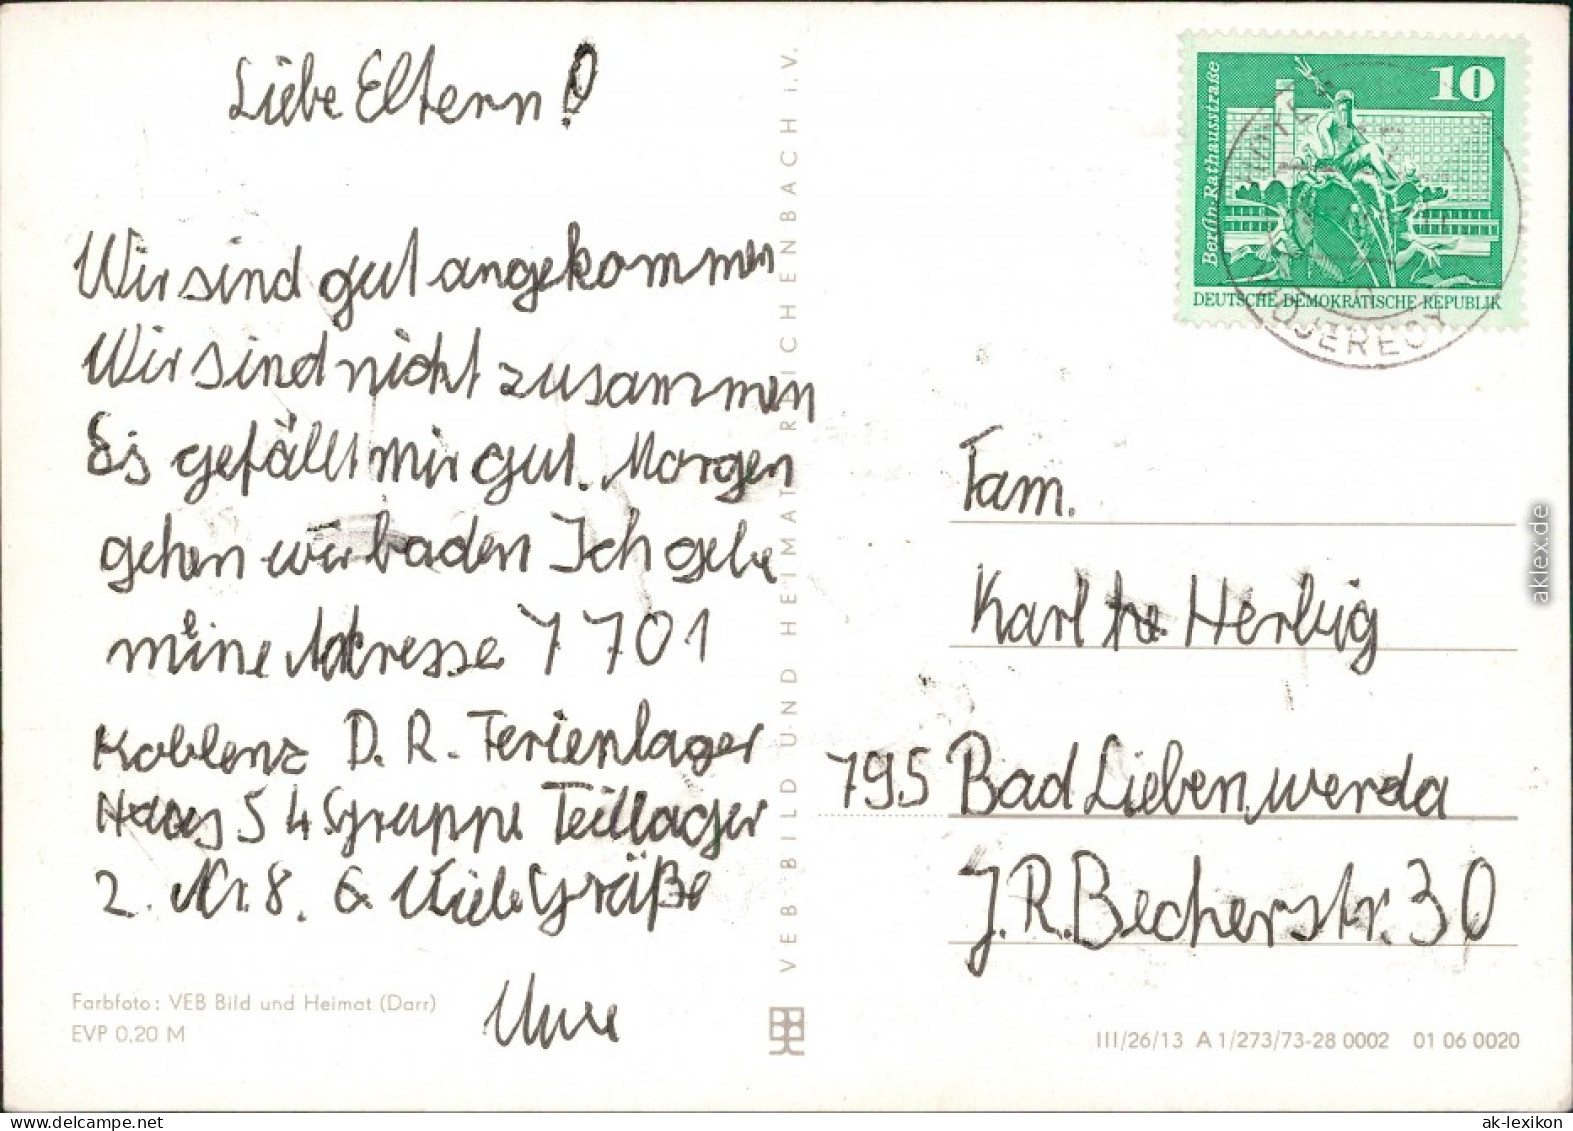 Liebe Eltern!
Wir sind gut angekommen
Wir sind nicht zusammen
Es gefällt mir gut. Morgen
gehen wir baden Ich gebe
meine Adresse 7701
Koblenz D. R. Ferienlager
Haus 5 4. Gruppe Teillager
2. Nr. 8. Viele Grüße
Uwe
Farbfoto: VEB Bild und Heimat (Darr)
EVP 0,20 M
VEB BILD UND HEIMAT REICHENBACH i.V.
10
Berlin-Rathausstraße
DEUTSCHE DEMOKRATISCHE REPUBLIK
WOJERECY
Fam.
Karl Herbig
795 Bad Liebenwerda
J. R. Becherstr. 30
III/26/13 A 1/273/73-28 0002 01 06 0020
aklex.de
ak-lexikon